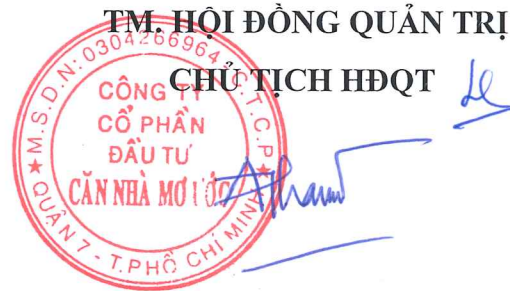 TM. HỘI ĐỒNG QUẢN TRỊ
CHỦ TỊCH HĐQT
M.S.D.N: 0304266964 - C.T.C.P
CÔNG TY
CỔ PHẦN
ĐẦU TƯ
CĂN NHÀ MƠ ƯỚC
QUẬN 7 - T.PHỐ CHÍ MINH